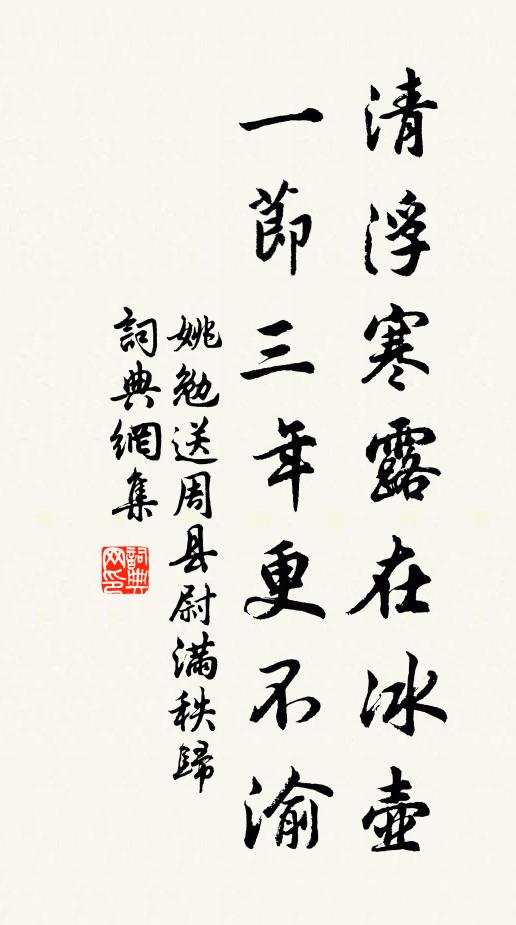 清浮寒露在冰壺
一節三年更不渝
姚勉送周县尉滿秩歸
詞典網集
詞典网印